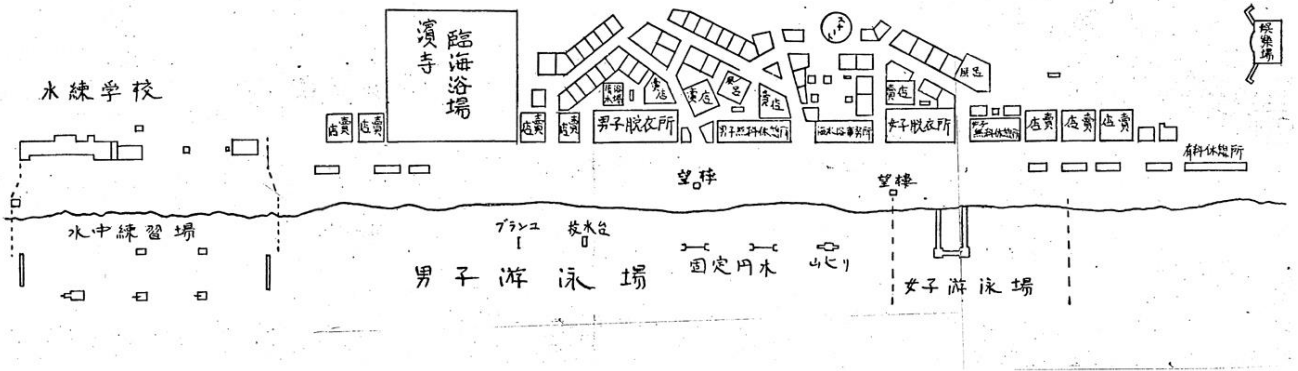 水練学校
臨海浴場
濱寺
賣店
賣店
賣店
賣店
男子脱衣所
賣店
賣店
風呂
賣店
男子無料休憩所
海水浴事務所
賣店
風呂
女子脱衣所
女子無料休憩所
賣店
賣店
賣店
有料休憩所
娯楽場
望楼
望楼
水中練習場
ブランコ
投水台
男子游泳場
固定円木
山スベリ
女子游泳場